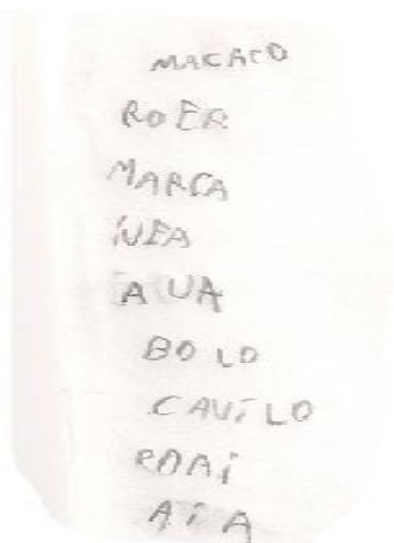 MACACO
ROER
MARCA
IVEA
A UA
BOLO
CAVILO
RDAI
AIA